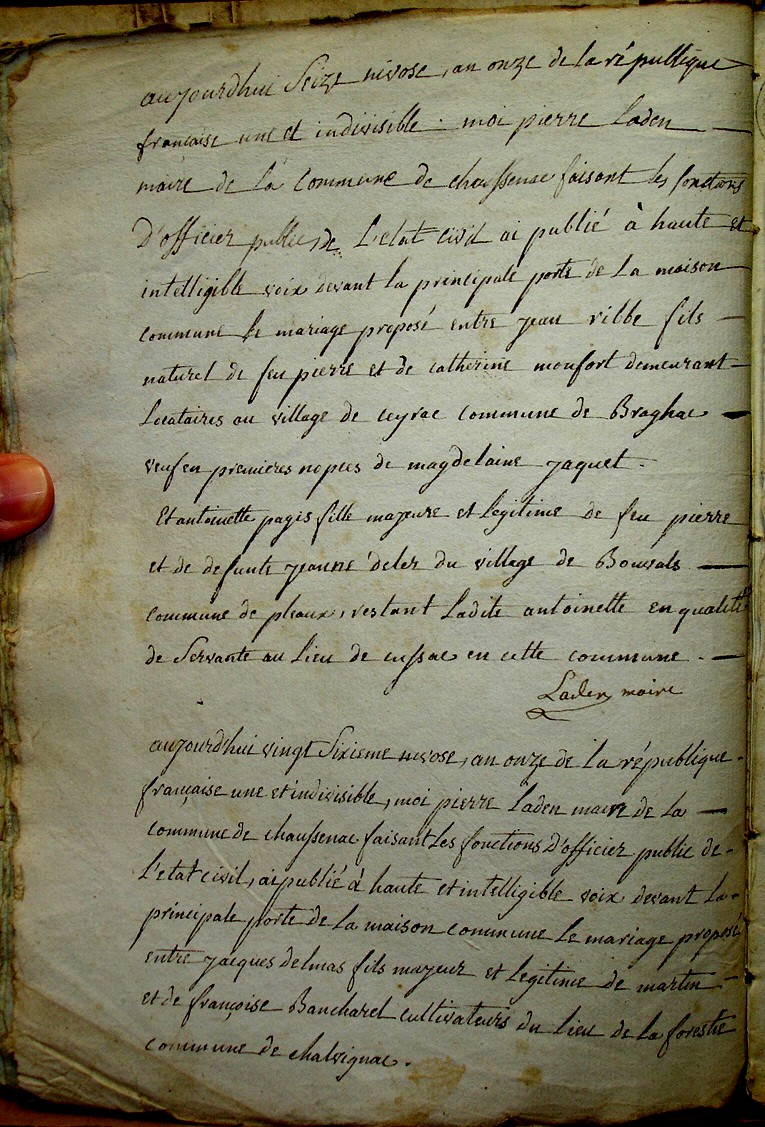 aujourdhui Seize nivose, an onze de la république
française une et indivisible. moi pierre Laden
maire de la commune de chaussenac faisant les fonctions
D'officier public de L'etat civil ai publié à haute et
intelligible voix devant la principale porte de la maison
commune le mariage proposé entre jean fils
naturel de feu pierre et de catherine monfort demeurant
Locataires au village de ceyrac commune de Braghac
veuf en premieres nopces de magdelaine jaquet.
Et antoinette pagis fille majeure et legitime de feu pierre
et de defunte jeanne deler du village de
commune de pleaux, restant Ladite antoinette en qualité
de Servante au Lieu de cussac en cette commune.
Laden maire
aujourd'hui vingt Sixieme nivose, an onze de la république
française une et indivisible, moi pierre Laden maire de La
commune de chaussenac faisant Les fonctions D'officier public de
L'etat civil, ai publié à haute et intelligible voix devant La
principale porte de La maison commune Le mariage proposé
entre jacques delmas fils majeur et Legitime de martin
et de françoise Bancharel cultivateurs du Lieu de La forestie
commune de chalvignac.